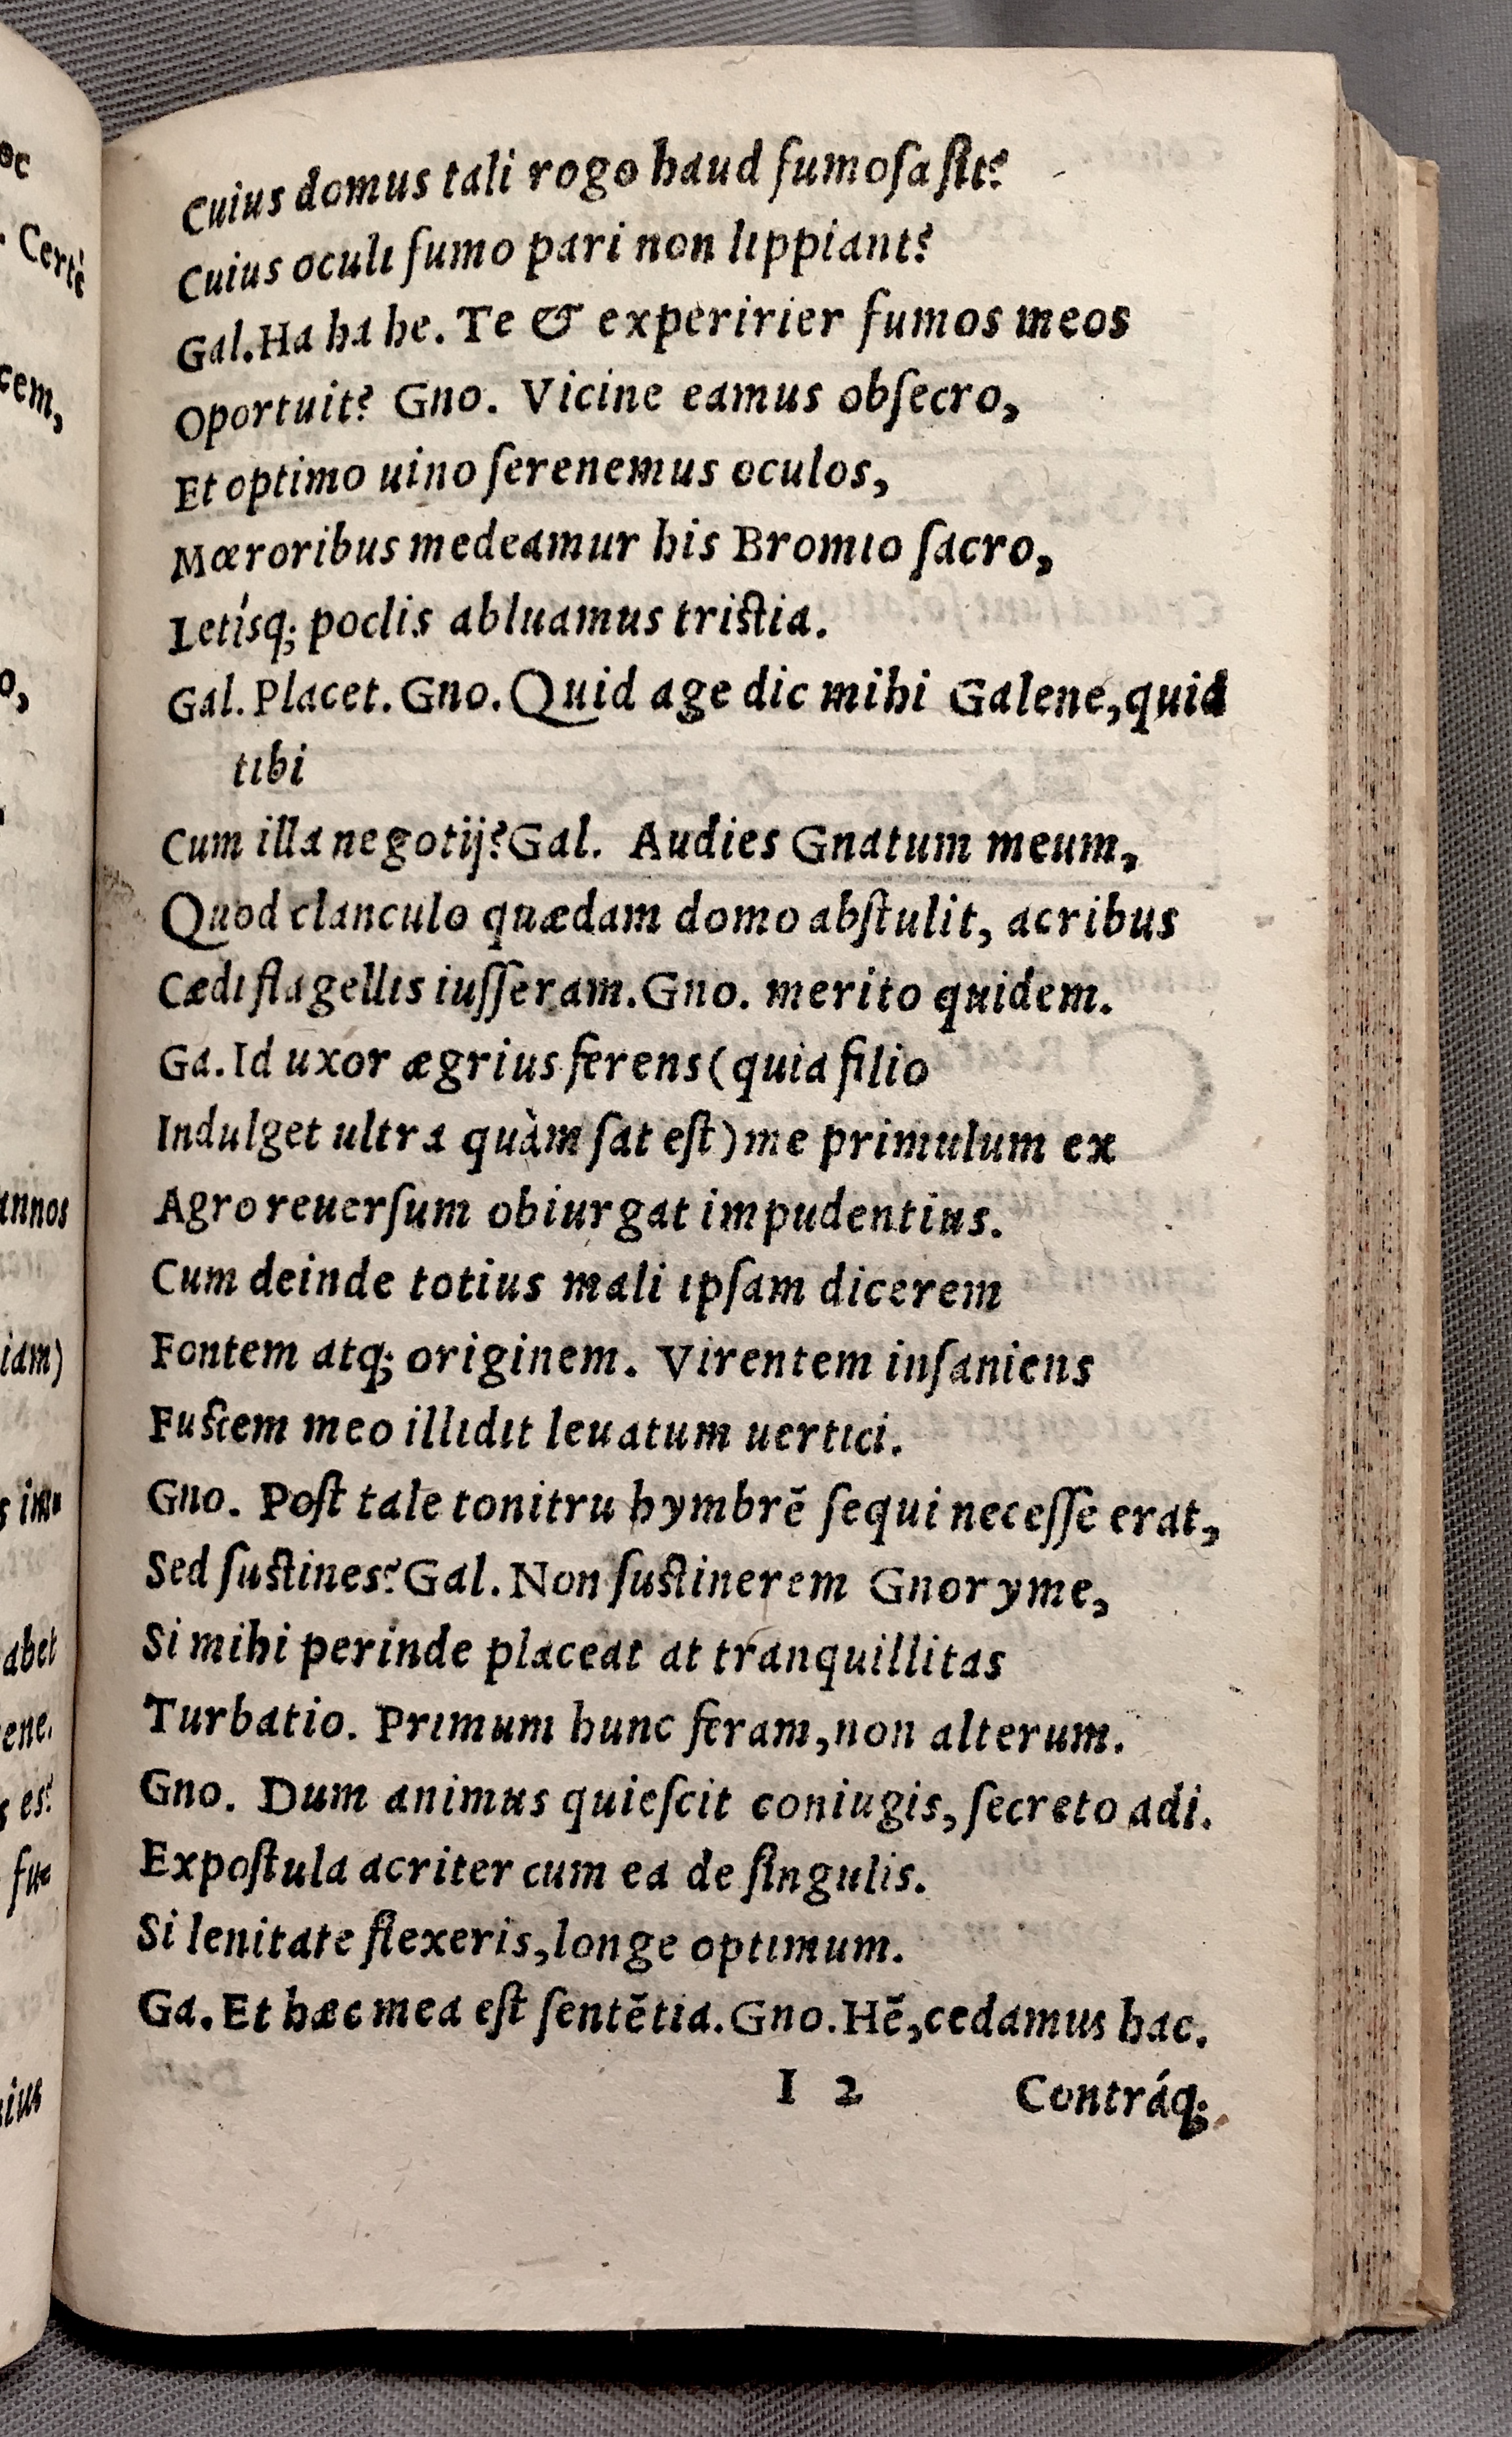 Cuius domus tali rogo haud fumoſa ſit?
Cuius oculi fumo pari non lippiant?
Gal. Ha ha he. Te & experirier fumos meos
Oportuit? Gno. Vicine eamus obſecro,
Et optimo uino ſerenemus oculos,
Mœroribus medeamur his Bromio ſacro,
Letíſq; poclis abluamus triſtia.
Gal. Placet. Gno. Quid age dic mihi Galene, quid
tibi
Cum illa negotij? Gal. Audies Gnatum meum,
Quod clanculo quædam domo abſtulit, acribus
Cædi flagellis iuſſeram. Gno. merito quidem.
Ga. Id uxor ægrius ferens (quia filio
Indulget ultra quàm ſat eſt) me primulum ex
Agro reuerſum obiurgat impudentius.
Cum deinde totius mali ipſam dicerem
Fontem atq; originem. Virentem inſaniens
Fuſtem meo illidit leuatum uertici.
Gno. Poſt tale tonitru hymbrē ſequi neceſſe erat,
Sed ſuſtines? Gal. Non ſuſtinerem Gnoryme,
Si mihi perinde placeat at tranquillitas
Turbatio. Primum hunc feram, non alterum.
Gno. Dum animus quieſcit coniugis, ſecreto adi.
Expoſtula acriter cum ea de ſingulis.
Si lenitate flexeris, longe optimum.
Ga. Et hæc mea eſt ſentētia. Gno. Hē, cedamus hac.
I 2 Contráq;